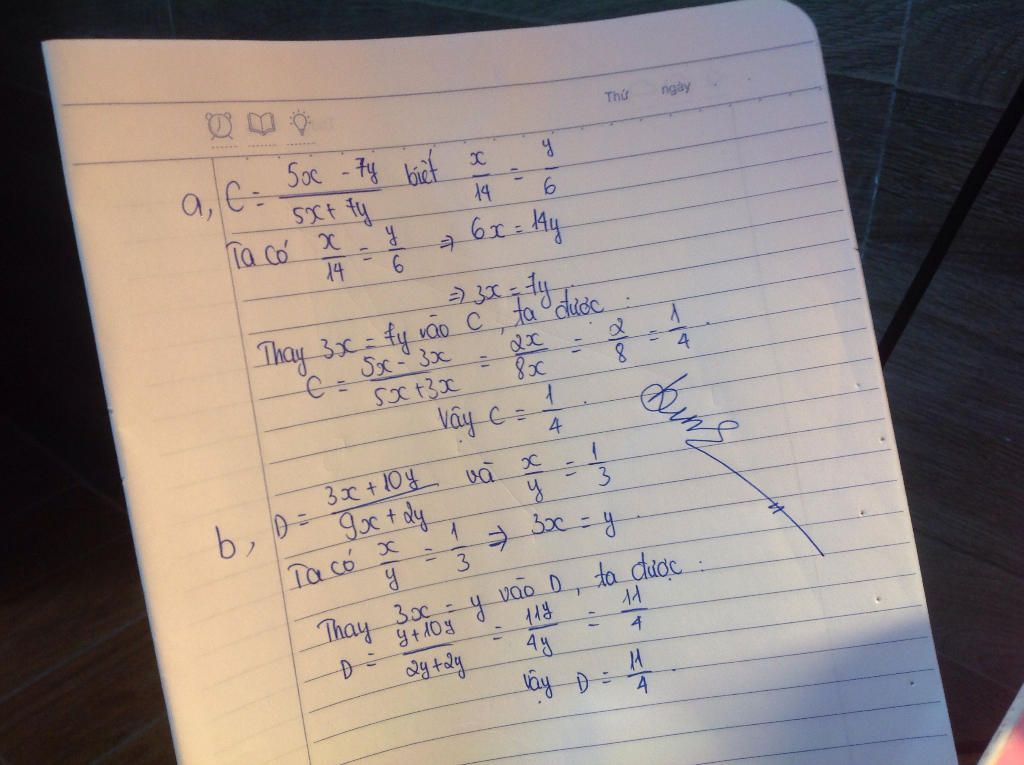 Thứ ngày
a, C = (5x - 7y)/(5x + 7y) biết x/14 = y/6
Ta có x/14 = y/6 ⇒ 6x = 14y
⇒ 3x = 7y
Thay 3x = 7y vào C, ta được.
C = (5x - 3x)/(5x + 3x) = 2x/8x = 2/8 = 1/4.
Vậy C = 1/4.
b, D = (3x + 10y)/(9x + 2y) và x/y = 1/3
Ta có x/y = 1/3 ⇒ 3x = y.
Thay 3x = y vào D, ta được:
D = (y + 10y)/(2y + 2y) = 11y/4y = 11/4
Vậy D = 11/4.